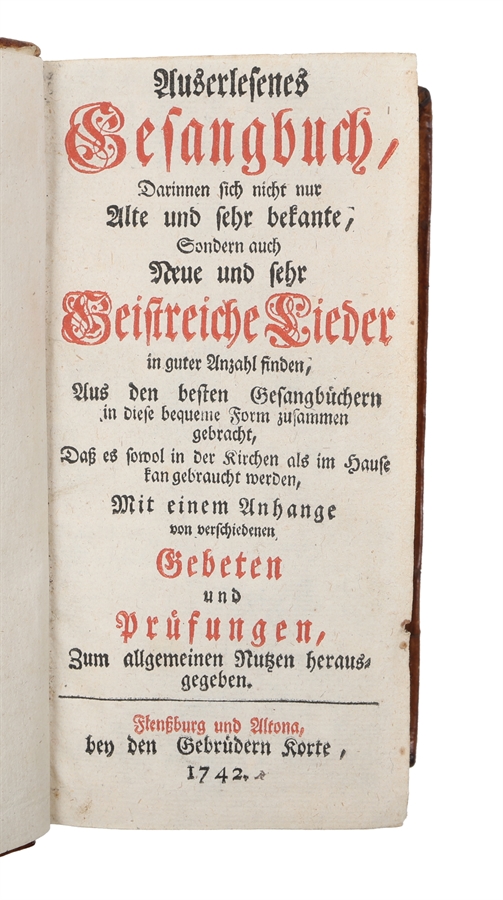 Auserlesenes
Gesangbuch,
Darinnen sich nicht nur
Alte und sehr bekante,
Sondern auch
Neue und sehr
Geistreiche Lieder
in guter Anzahl finden,
Aus den besten Gesangbüchern
in diese bequeme Form zusammen
gebracht,
Daß es sowol in der Kirchen als im Hause
kan gebraucht werden,
Mit einem Anhange
von verschiedenen
Gebeten
und
Prüfungen,
Zum allgemeinen Nutzen heraus-
gegeben.
Flenßburg und Altona,
bey den Gebrüdern Korte,
1742.